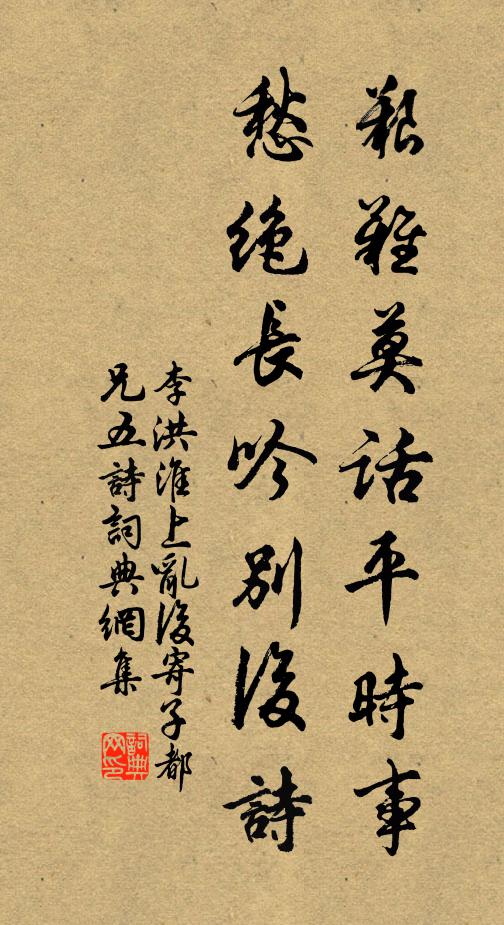 艱難莫話平時事
愁絕長吟別後詩
李洪淮上亂後寄子都
兄五詩詞典網集
詞典
網印